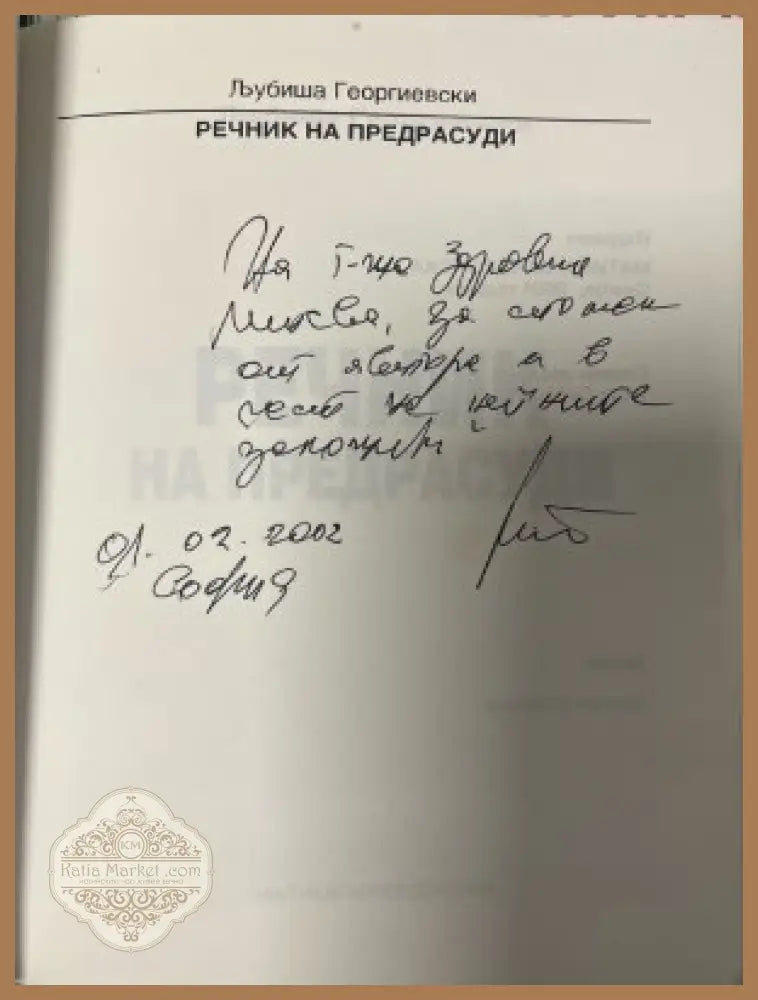 Љубиша Георгиевски
РЕЧНИК НА ПРЕДРАСУДИ
На г-жа Здравка
за спомен
от автора и в
чест на нейните
01. 02. 2002
София
РЕЧНИК
НА ПРЕДРАСУДИ
KM
Katia Market .com